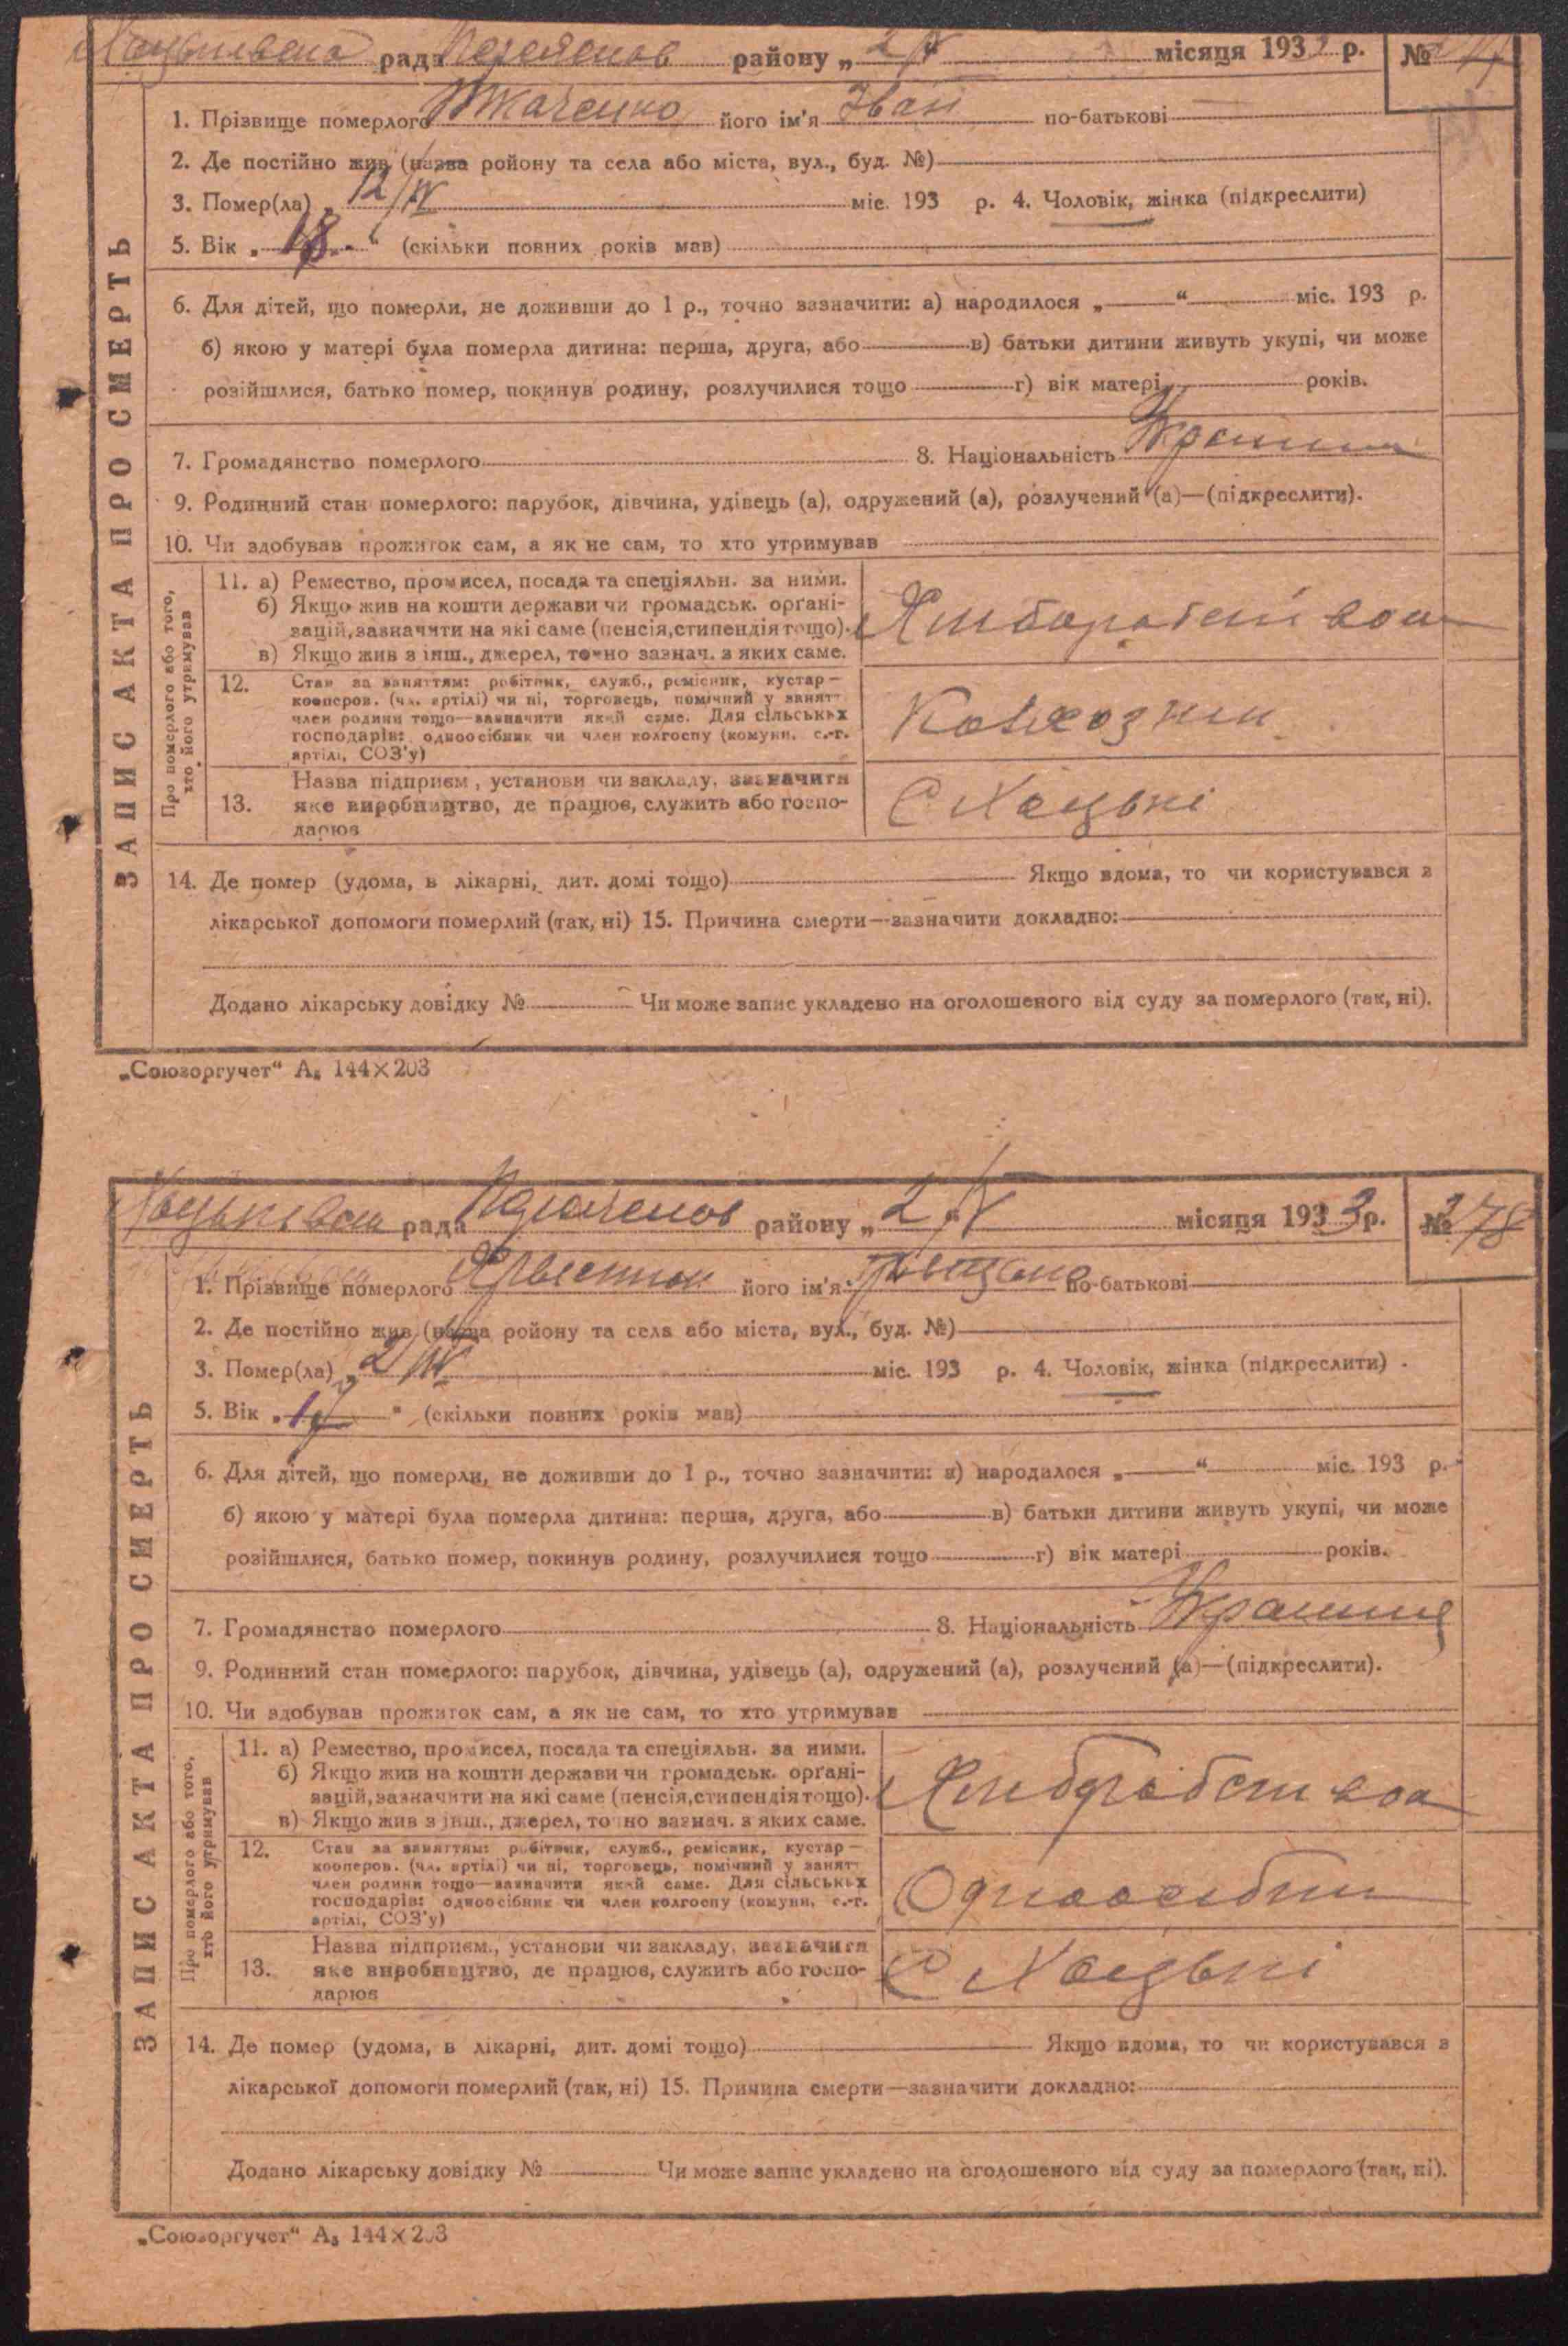 рада району „ 2/V місяця 193 р. №
1. Прізвище померлого Ткаченко його ім'я Іван по-батькові
2. Де постійно жив (назва ройону та села або міста, вул., буд. №)
3. Помер(ла) „ 12/IV міс. 193 р. 4. Чоловік, жінка (підкреслити)
5. Вік „ 18 “ (скільки повних років мав)
6. Для дітей, що померли, не доживши до 1 р., точно зазначити: а) народилося „ “ міс. 193 р.
б) якою у матері була померла дитина: перша, друга, або в) батьки дитини живуть укупі, чи може
розійшлися, батько помер, покинув родину, розлучилися тощо г) вік матері років.
7. Громадянство померлого 8. Національність
9. Родинний стан померлого: парубок, дівчина, удівець (а), одружений (а), розлучений (а)—(підкреслити).
10. Чи здобував прожиток сам, а як не сам, то хто утримував
ЗАПИС АКТА ПРО СМЕРТЬ
Про померлого або того,
хто його утримував
11. а) Ремество, промисел, посада та спеціяльн. за ними.
б) Якщо жив на кошти держави чи громадськ. орґані-
зацій, зазначити на які саме (пенсія, стипендія тощо).
в) Якщо жив з інш., джерел, точно зазнач. з яких саме.
12. Стан за заняттям: робітник, служб., ремісник, кустар—
кооперов. (чл. артілі) чи ні, торговець, помічний у занят-
член родини тощо—зазначити який саме. Для сільських
господарів: одноосібник чи член колгоспу (комуни, с.-г.
артілі, СОЗ'у)
13. Назва підприєм., установи чи закладу, зазначити
яке виробництво, де працює, служить або госпо-
дарює
С Хацьні
14. Де помер (удома, в лікарні, дит. домі тощо) Якщо вдома, то чи користувався з
лікарської допомоги померлий (так, ні) 15. Причина смерти—зазначити докладно:
Додано лікарську довідку № Чи може запис укладено на оголошеного від суду за померлого (так, ні).
„Союзоргучет“ А₅ 144×203
рада району „ 2/V місяця 1933 р. № 278
1. Прізвище померлого його ім'я по-батькові
2. Де постійно жив (назва ройону та села або міста, вул., буд. №)
3. Помер(ла) „ 2/IV міс. 193 р. 4. Чоловік, жінка (підкреслити)
5. Вік „ 17 “ (скільки повних років мав)
6. Для дітей, що померли, не доживши до 1 р., точно зазначити: а) народилося „ “ міс. 193 р.
б) якою у матері була померла дитина: перша, друга, або в) батьки дитини живуть укупі, чи може
розійшлися, батько помер, покинув родину, розлучилися тощо г) вік матері років.
7. Громадянство померлого 8. Національність
9. Родинний стан померлого: парубок, дівчина, удівець (а), одружений (а), розлучений (а)—(підкреслити).
10. Чи здобував прожиток сам, а як не сам, то хто утримував
ЗАПИС АКТА ПРО СМЕРТЬ
Про померлого або того,
хто його утримував
11. а) Ремество, промисел, посада та спеціяльн. за ними.
б) Якщо жив на кошти держави чи громадськ. орґані-
зацій, зазначити на які саме (пенсія, стипендія тощо).
в) Якщо жив з інш., джерел, точно зазнач. з яких саме.
12. Стан за заняттям: робітник, служб., ремісник, кустар—
кооперов. (чл. артілі) чи ні, торговець, помічний у занят-
член родини тощо—зазначити який саме. Для сільських
господарів: одноосібник чи член колгоспу (комуни, с.-г.
артілі, СОЗ'у)
13. Назва підприєм., установи чи закладу, зазначити
яке виробництво, де працює, служить або госпо-
дарює
С Хацьні
14. Де помер (удома, в лікарні, дит. домі тощо) Якщо вдома, то чи користувався з
лікарської допомоги померлий (так, ні) 15. Причина смерти—зазначити докладно:
Додано лікарську довідку № Чи може запис укладено на оголошеного від суду за померлого (так, ні).
„Союзоргучет“ А₅ 144×203